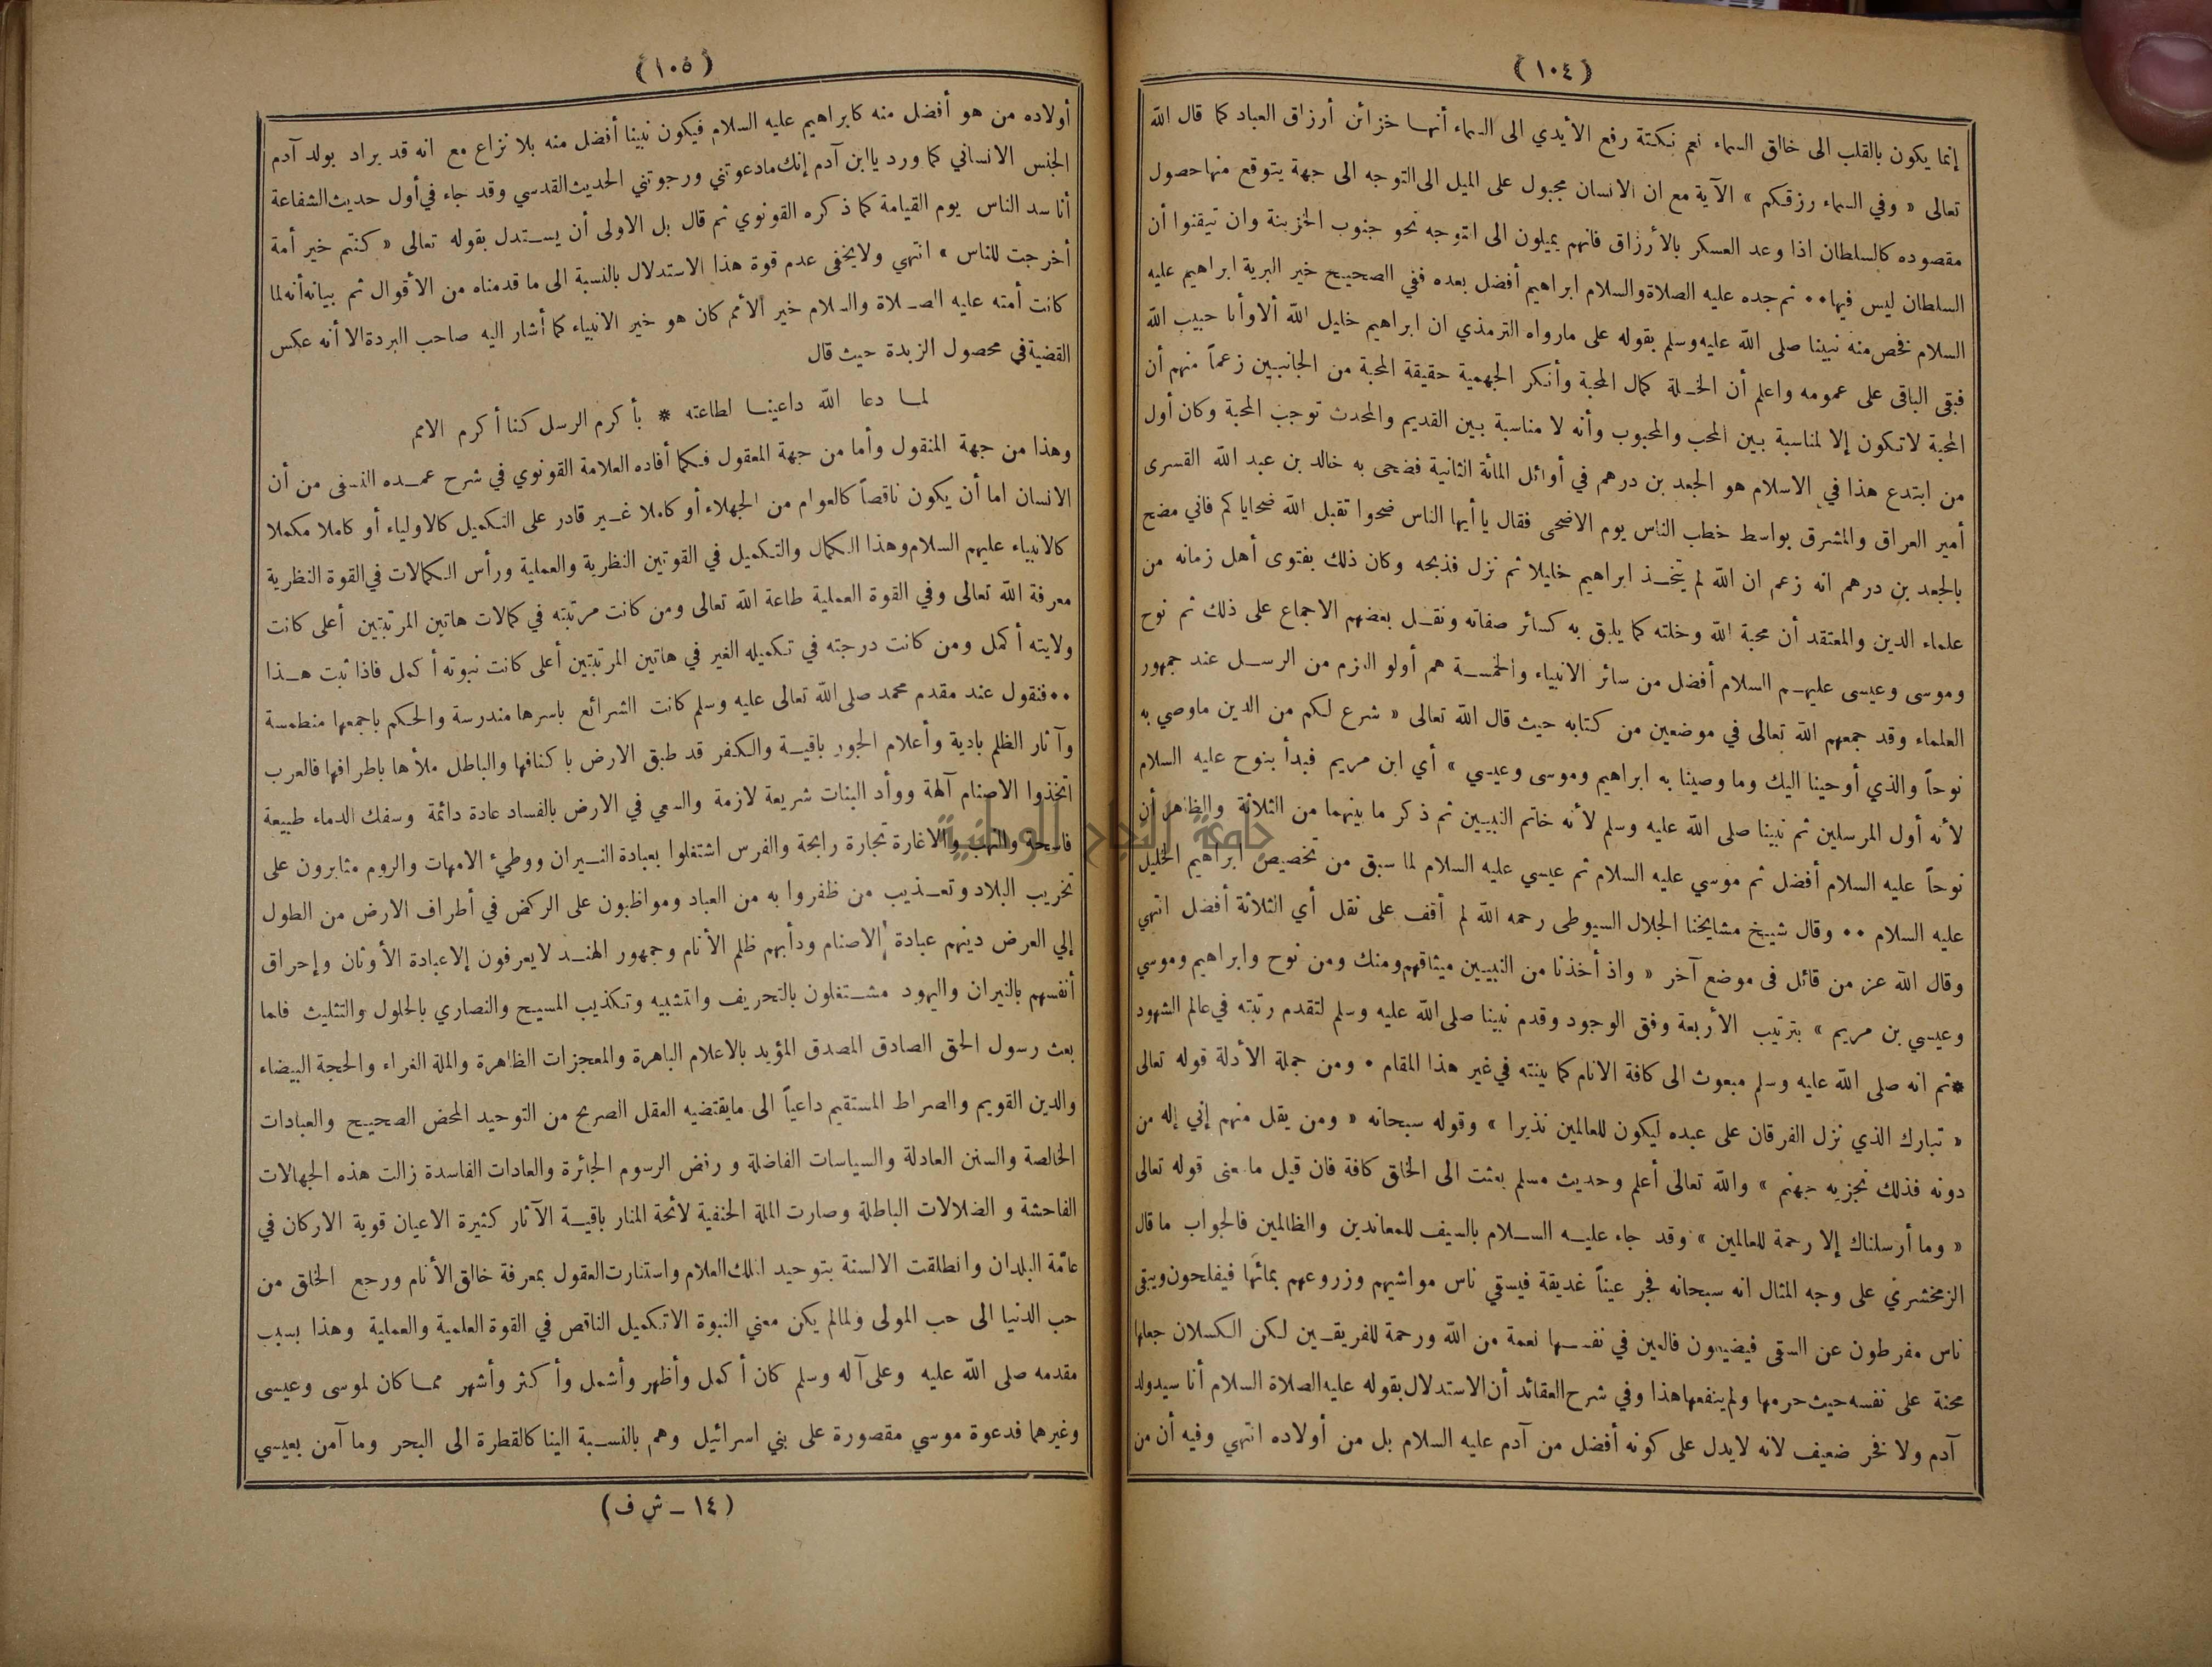 (١٠٤)
إنما يكون بالقلب الى خالق السماء نعم نكتة رفع الأيدي الى السماء أنها خزائن أرزاق العباد كما قال الله
تعالى « وفي السماء رزقكم » الآية مع ان الانسان مجبول على الميل الى التوجه الى جهة يتوقع منها حصول
مقصوده كالسلطان اذا وعد العسكر بالأرزاق فانهم يميلون الى التوجه نحو جنوب الخزينة وان تيقنوا أن
السلطان ليس فيها •• ثم جده عليه الصلاة والسلام ابراهيم أفضل بعده ففي الصحيح خير البرية ابراهيم عليه
السلام فخص منه نبينا صلى الله عليه وسلم بقوله على مارواه الترمذي ان ابراهيم خليل الله ألا وأنا حبيب الله
فبقى الباقى على عمومه واعلم أن الخلة كمال المحبة وأنكر الجهمية حقيقة المحبة من الجانبين زعماً منهم أن
المحبة لاتكون إلا لمناسبة بين المحب والمحبوب وأنه لا مناسبة بين القديم والمحدث توجب المحبة وكان أول
من ابتدع هذا في الاسلام هو الجعد بن درهم في أوائل المائة الثانية فضحى به خالد بن عبد الله القسرى
أمير العراق والمشرق بواسط خطب الناس يوم الاضحى فقال يا أيها الناس ضحوا تقبل الله ضحاياكم فاني مضح
بالجعد بن درهم انه زعم ان الله لم يتخذ ابراهيم خليلا ثم نزل فذبحه وكان ذلك بفتوى أهل زمانه من
علماء الدين والمعتقد أن محبة الله وخلته كما يليق به كسائر صفاته ونقل بعضهم الاجماع على ذلك ثم نوح
وموسى وعيسى عليهم السلام أفضل من سائر الانبياء والخمسة هم أولو العزم من الرسل عند جمهور
العلماء وقد جمعهم الله تعالى في موضعين من كتابه حيث قال الله تعالى « شرع لكم من الدين ماوصي به
نوحاً والذي أوحينا اليك وما وصينا به ابراهيم وموسى وعيسي » أي ابن مريم فبدأ بنوح عليه السلام
لأنه أول المرسلين ثم نبينا صلى الله عليه وسلم لأنه خاتم النبيين ثم ذكر ما بينهما من الثلاثة والظاهر أن
نوحاً عليه السلام أفضل ثم موسي عليه السلام ثم عيسي عليه السلام لما سبق من تخصيص ابراهيم الخليل
عليه السلام •• وقال شيخ مشايخنا الجلال السيوطى رحمه الله لم أقف على نقل أي الثلاثة أفضل انتهي
وقال الله عز من قائل فى موضع آخر « واذ أخذنا من النبيين ميثاقهم ومنك ومن نوح وابراهيم وموسي
وعيسي بن مريم » بترتيب الأربعة وفق الوجود وقدم نبينا صلى الله عليه وسلم لتقدم رتبته في عالم الشهود
*ثم انه صلى الله عليه وسلم مبعوث الى كافة الانام كما بينته في غير هذا المقام • ومن جملة الأدلة قوله تعالى
« تبارك الذي نزل الفرقان على عبده ليكون للعالمين نذيرا » وقوله سبحانه « ومن يقل منهم إني إله من
دونه فذلك نجزيه جهنم » والله تعالى أعلم وحديث مسلم بعثت الى الخلق كافة فان قيل ما معنى قوله تعالى
« وما أرسلناك إلا رحمة للعالمين » وقد جاء عليه السلام بالسيف للمعاندين والظالمين فالجواب ما قال
الزمخشري على وجه المثال انه سبحانه فجر عيناً غديقة فيسقي ناس مواشيهم وزروعهم بمائها فيفلحون ويبقى
ناس مفرطون عن السقى فيضيعون فالعين في نفسها نعمة من الله ورحمة للفريقين لكن الكسلان جعلها
محنة على نفسه حيث حرمها ولم ينفعها هذا وفي شرح العقائد أن الاستدلال بقوله عليه الصلاة السلام أنا سيد ولد
آدم ولا فخر ضعيف لانه لايدل على كونه أفضل من آدم عليه السلام بل من أولاده انتهي وفيه أن من
(١٠٥)
أولاده من هو أفضل منه كابراهيم عليه السلام فيكون نبينا أفضل منه بلا نزاع مع انه قد يراد بولد آدم
الجنس الانساني كما ورد يا ابن آدم إنك مادعوتني ورجوتني الحديث القدسي وقد جاء في أول حديث الشفاعة
أنا سد الناس يوم القيامة كما ذكره القونوي ثم قال بل الاولى أن يستدل بقوله تعالى « كنتم خير أمة
أخرجت للناس » انتهي ولايخفى عدم قوة هذا الاستدلال بالنسبة الى ما قدمناه من الأقوال ثم بيانه أنه لما
كانت أمته عليه الصلاة والسلام خير الأمم كان هو خير الانبياء كما أشار اليه صاحب البردة الا أنه عكس
القضية في محصول الزبدة حيث قال
لما دعا الله داعينا لطاعته * بأكرم الرسل كنا أكرم الامم
وهذا من جهة المنقول وأما من جهة المعقول فكما أفاده العلامة القونوي في شرح عمده النسفى من أن
الانسان اما أن يكون ناقصاً كالعوام من الجهلاء أو كاملا غير قادر على التكميل كالاولياء أو كاملا مكملا
كالانبياء عليهم السلام وهذا الكمال والتكميل في القوتين النظرية والعملية ورأس الكمالات في القوة النظرية
معرفة الله تعالى وفي القوة العملية طاعة الله تعالى ومن كانت مرتبته في كمالات هاتين المرتبتين أعلى كانت
ولايته أكمل ومن كانت درجته في تكميله الغير في هاتين المرتبتين أعلى كانت نبوته أكمل فاذا ثبت هذا
•• فنقول عند مقدم محمد صلى الله تعالى عليه وسلم كانت الشرائع باسرها مندرسة والحكم باجمعها منطمسة
وآثار الظلم بادية وأعلام الجور باقية والكفر قد طبق الارض باكنافها والباطل ملأها باطرافها فالعرب
اتخذوا الاصنام آلهة ووأد البنات شريعة لازمة والسعي في الارض بالفساد عادة دائمة وسفك الدماء طبيعة
والنهب والاغارة تجارة رابحة والفرس اشتغلوا بعبادة النيران ووطيء الامهات والروم مثابرون على
تخريب البلاد وتعذيب من ظفروا به من العباد ومواظبون على الركض في أطراف الارض من الطول
إلي العرض دينهم عبادة الاصنام ودأبهم ظلم الأنام وجمهور الهند لايعرفون إلا عبادة الأوثان وإحراق
أنفسهم بالنيران واليهود مشتغلون بالتحريف والتشبيه وتكذيب المسيح والنصاري بالحلول والتثليث فلما
بعث رسول الحق الصادق المصدق المؤيد بالاعلام الباهرة والمعجزات الظاهرة والملة الغراء والحجة البيضاء
والدين القويم والصراط المستقيم داعياً الى مايقتضيه العقل الصريح من التوحيد المحض الصحيح والعبادات
الخالصة والسنن العادلة والسياسات الفاضلة و رفض الرسوم الجائرة والعادات الفاسدة زالت هذه الجهالات
الفاحشة و الضلالات الباطلة وصارت الملة الحنفية لائحة المنار باقية الآثار كثيرة الاعيان قوية الاركان في
عامّة البلدان وانطلقت الالسنة بتوحيد الملك العلام واستنارت العقول بمعرفة خالق الأنام ورجع الخلق من
حب الدنيا الى حب المولى ولما لم يكن معني النبوة الا تكميل الناقص في القوة العلمية والعملية وهذا بسبب
مقدمه صلى الله عليه وعلى آله وسلم كان أكمل وأظهر وأشمل وأكثر وأشهر مما كان لموسى وعيسى
وغيرهما فدعوة موسي مقصورة على بني اسرائيل وهم بالنسبة الينا كالقطرة الى البحر وما آمن بعيسي
(١٤ – ش ف)
جامعة النجاح الوطنية